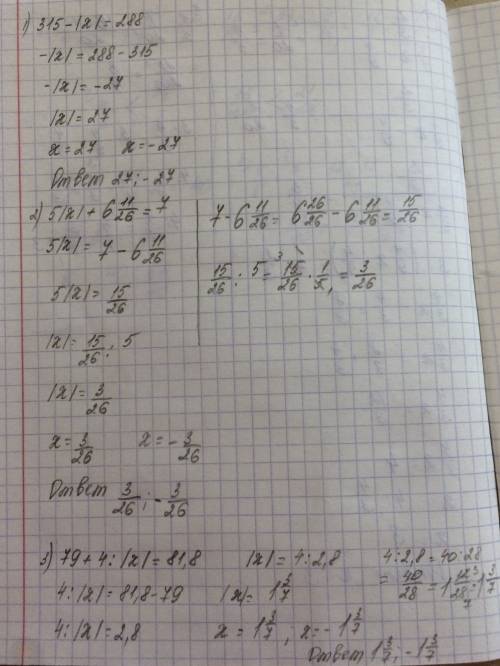 1) 315-|x|=288
-|x|=288-315
-|x|=-27
|x|=27
x=27 x=-27
Ответ 27;-27
2) 5|x|+6 11/26=7
5|x|=7-6 11/26
5|x|=15/26
|x|=15/26:5
|x|=3/26
x=3/26 x=-3/26
Ответ 3/26;-3/26
7-6 11/26=6 26/26-6 11/26=15/26
15/26:5=15/26·1/5=3/26
3) 79+4:|x|=81,8
4:|x|=81,8-79
4:|x|=2,8
|x|=4:2,8
|x|=1 3/7
x=1 3/7; x=-1 3/7
4:2,8=40:28
=40/28=1 12/28=1 3/7
Ответ 1 3/7;-1 3/7